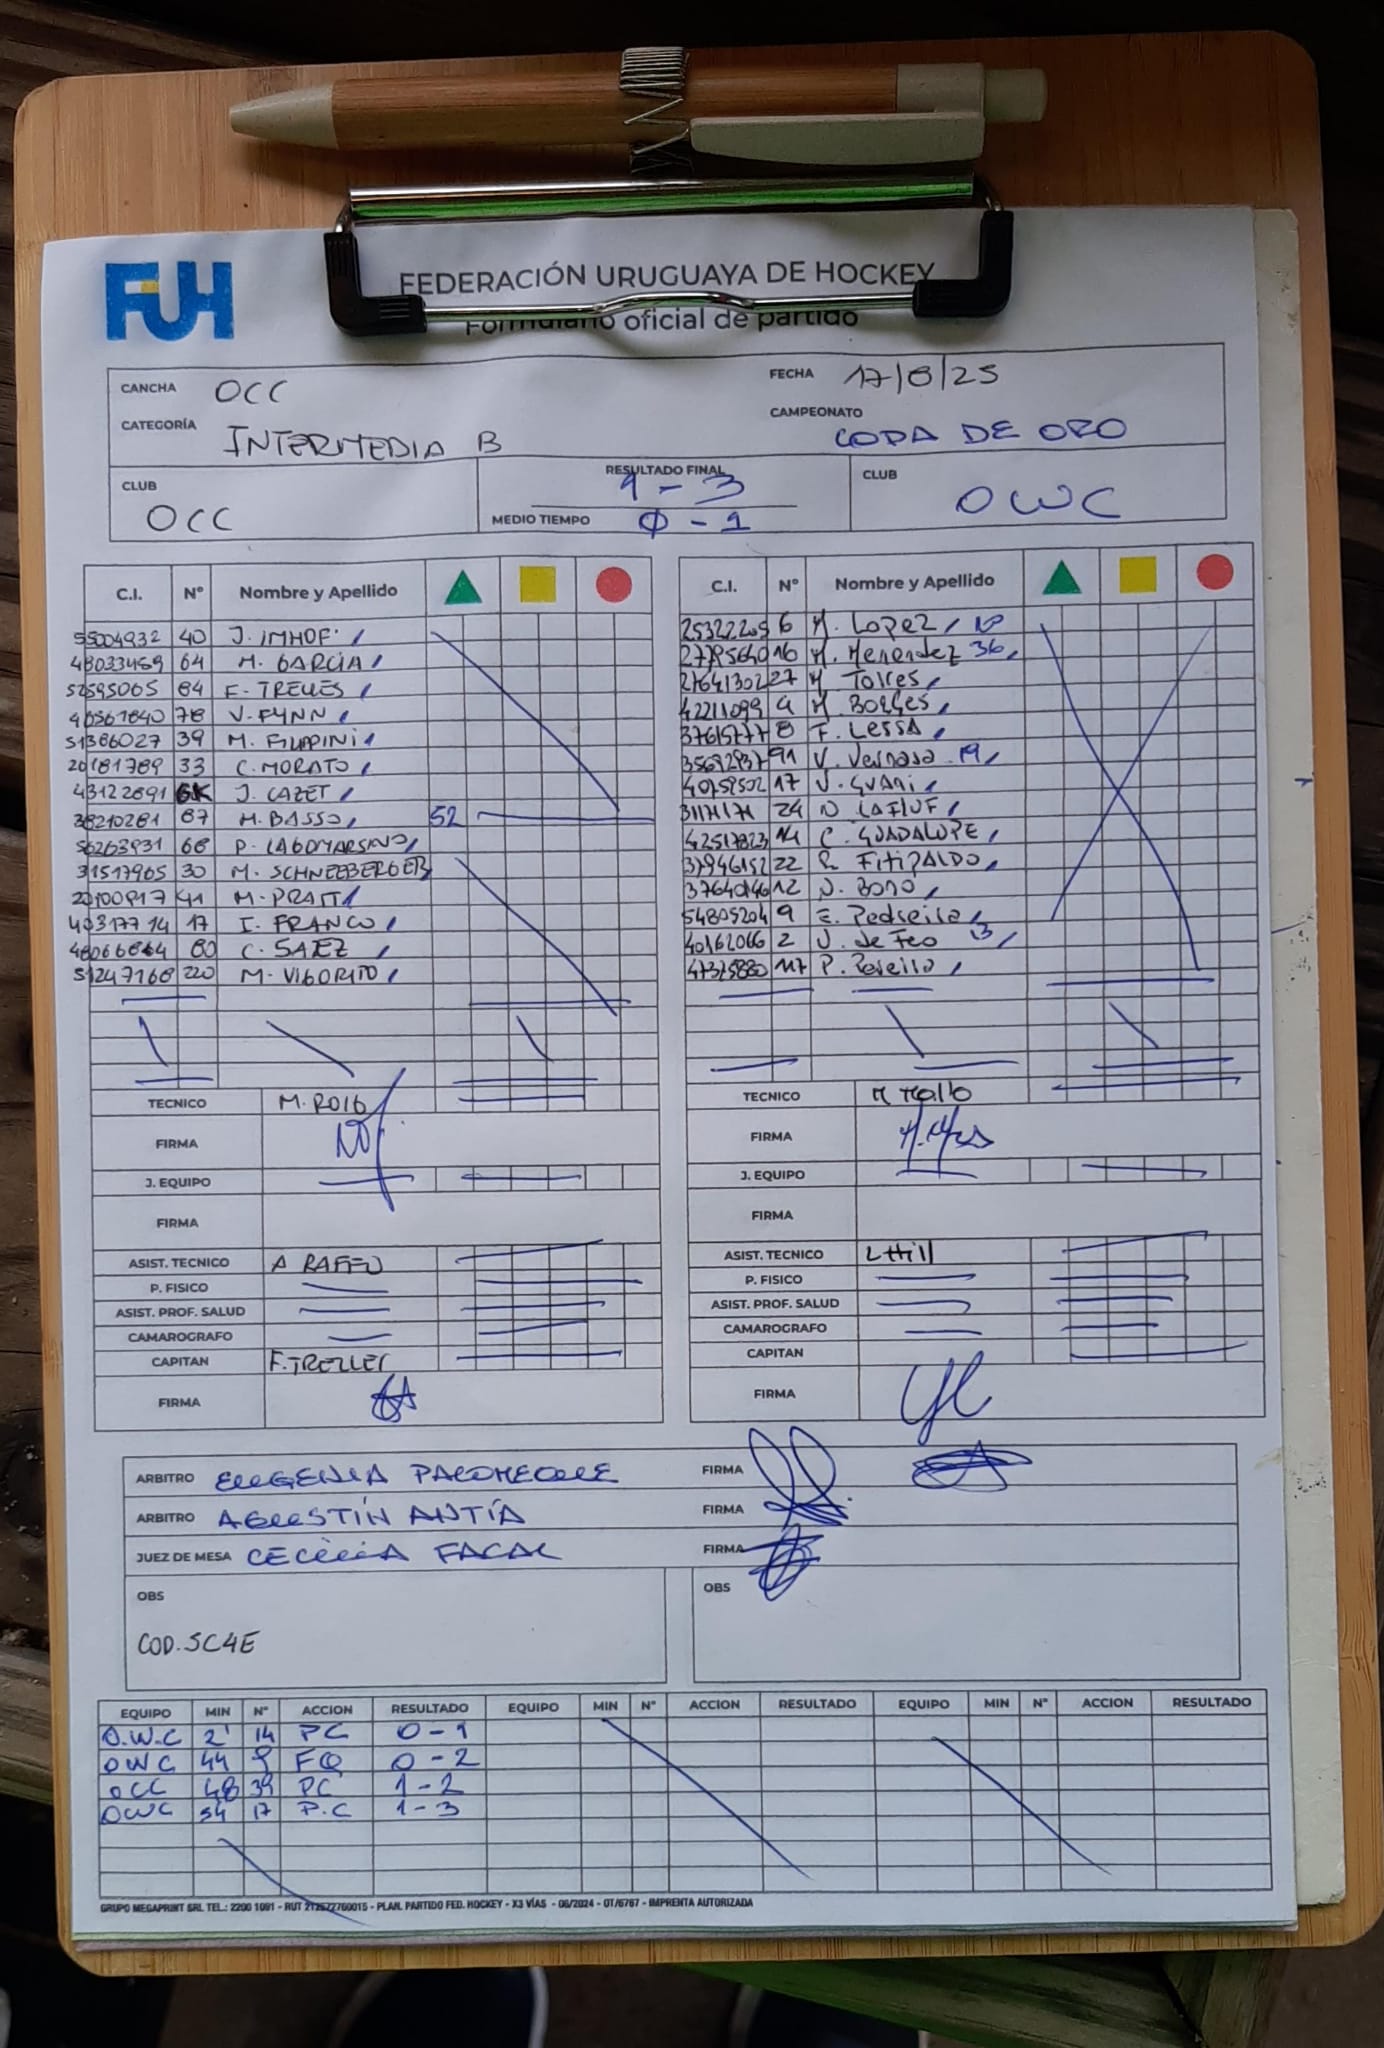 FUH
FEDERACIÓN URUGUAYA DE HOCKEY
Formulario oficial de partido
CANCHA OCC FECHA 17/8/25
CATEGORÍA INTERMEDIA B CAMPEONATO COPA DE ORO
CLUB OCC RESULTADO FINAL 1-3 CLUB OWC
MEDIO TIEMPO 0-1
C.I. Nº Nombre y Apellido
55004932 40 J. IMHOF
48033489 64 M. GARCIA
52595065 84 F. TRELLES
40561840 78 V. FYNN
51386027 39 M. FILIPPINI
20181789 33 C. MORATO
43122891 GK J. CAZET
38210281 87 M. BASSO 52
56263931 68 P. LAGOMARSINO
31517965 30 M. SCHNEEBERGER
20100817 41 M. PRATT
17 I. FRANCO
80 C. SAEZ
51247168 220 M. VIGORITO
TECNICO M. ROIG
FIRMA
J. EQUIPO
FIRMA
ASIST. TECNICO A RAFFO
P. FISICO
ASIST. PROF. SALUD
CAMAROGRAFO
CAPITAN F. TRELLES
FIRMA
C.I. Nº Nombre y Apellido
25322205 6 M. Lopez 10
27785640 16 M. Menendez 36
27641302 27 M Torres
42211099 4 M. Borges
37615777 8 F. LESSA
35692937 91 V. Vernasa 19
40759502 17 V. GUANI
31171171 24 D. LAFLUF
42517823 14 C. GUADALUPE
37946152 22 R. FITIPALDO
37640146 12 D. Bono
54805204 9 E. Pedreira
40162066 2 J. de Feo 13
47375880 117 P. Pereiro
TECNICO
FIRMA
J. EQUIPO
FIRMA
ASIST. TECNICO L Hill
P. FISICO
ASIST. PROF. SALUD
CAMAROGRAFO
CAPITAN
FIRMA
ARBITRO EUGENIA PALOMEQUE FIRMA
ARBITRO AGUSTÍN ANTÍA FIRMA
JUEZ DE MESA CECILIA FACAL FIRMA
OBS OBS
COD. 5C4E
EQUIPO MIN Nº ACCION RESULTADO EQUIPO MIN Nº ACCION RESULTADO EQUIPO MIN Nº ACCION RESULTADO
O.W.C 2' 14 PC 0-1
OWC 44 9 FQ 0-2
OCC 48 39 PC 1-2
OWC 54 17 P.C 1-3
GRUPO MEGAPRINT SRL TEL.: 2200 1091 - RUT 212572760015 - PLAN. PARTIDO FED. HOCKEY - X3 VÍAS - 06/2024 - OT/6767 - IMPRENTA AUTORIZADA